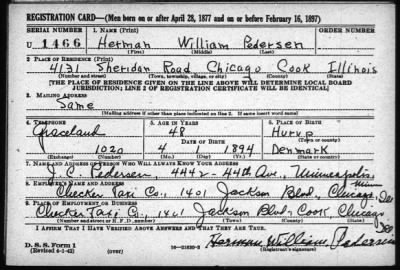 REGISTRATION CARD—(Men born on or after April 28, 1877 and on or before February 16, 1897)
SERIAL NUMBER 1. NAME (Print) ORDER NUMBER
U 1466 Herman William Pedersen
(First) (Middle) (Last)
2. PLACE OF RESIDENCE (Print)
4131 Sheridan Road Chicago Cook Illinois
(Number and street) (Town, township, village, or city) (County) (State)
[THE PLACE OF RESIDENCE GIVEN ON THE LINE ABOVE WILL DETERMINE LOCAL BOARD
JURISDICTION; LINE 2 OF REGISTRATION CERTIFICATE WILL BE IDENTICAL]
3. MAILING ADDRESS
Same
[Mailing address if other than place indicated on line 2. If same insert word same]
4. TELEPHONE 5. AGE IN YEARS 6. PLACE OF BIRTH
Graceland 48 Hurup
DATE OF BIRTH (Town or county)
1020 4 1 1894 Denmark
(Exchange) (Number) (Mo.) (Day) (Yr.) (State or country)
7. NAME AND ADDRESS OF PERSON WHO WILL ALWAYS KNOW YOUR ADDRESS
J. C. Pedersen 4442-44th Ave., Minneapolis, Minn
8. EMPLOYER'S NAME AND ADDRESS
Checker Taxi Co., 1401 Jackson Blvd., Chicago,
9. PLACE OF EMPLOYMENT OR BUSINESS
Checker Taxi Co., 1401 Jackson Blvd, Cook, Chicago
(Number and street or R. F. D. number) (Town) (County) (State)
I AFFIRM THAT I HAVE VERIFIED ABOVE ANSWERS AND THAT THEY ARE TRUE.
D. S. S. Form 1
(Revised 4-1-42) (over) Herman William Pedersen
(Registrant's signature)